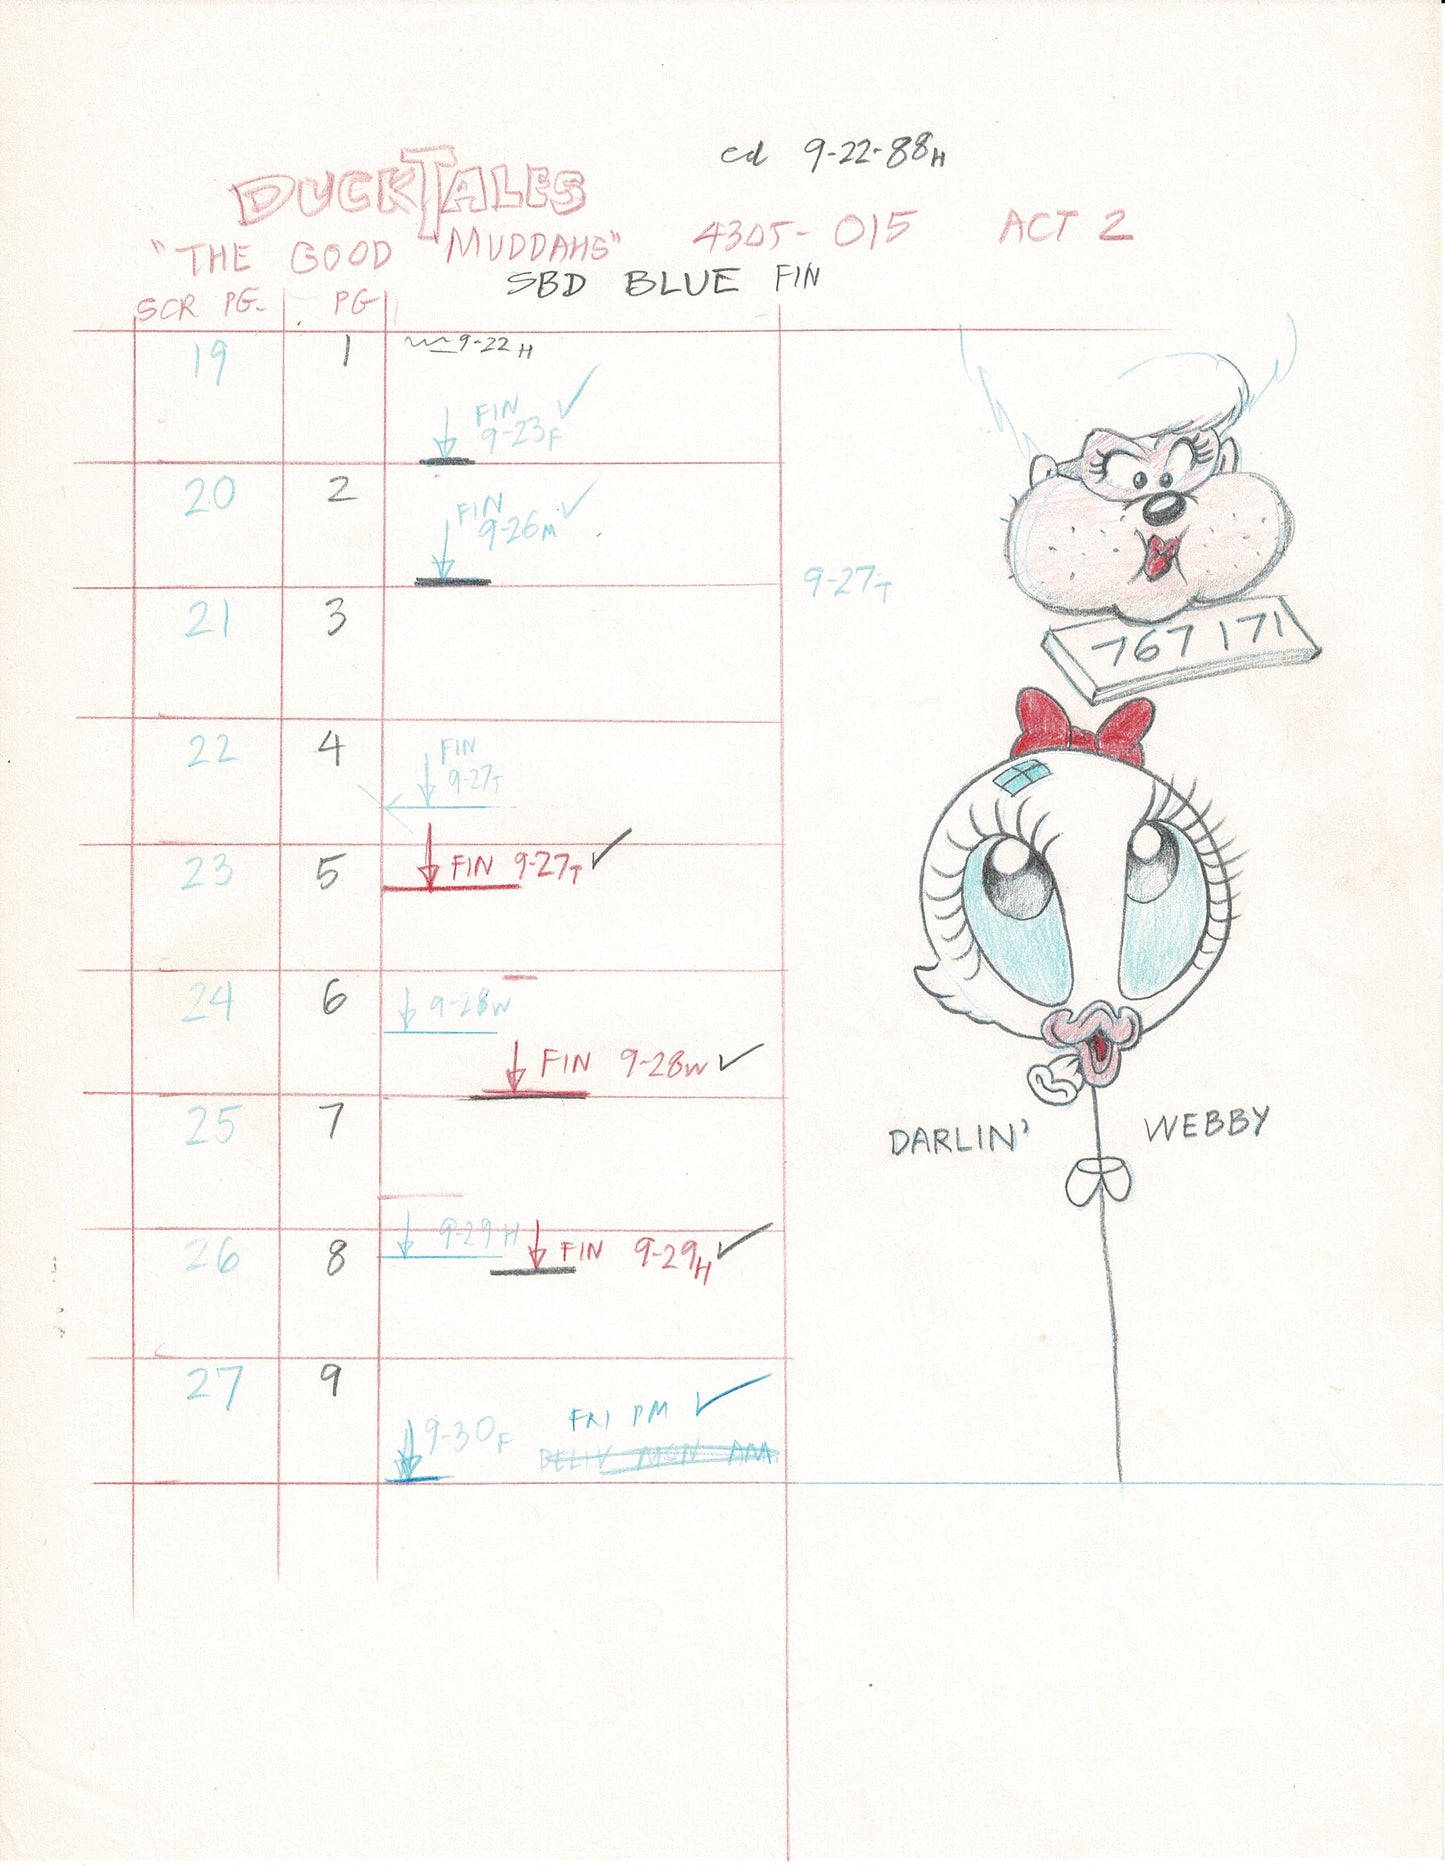 ed 9-22-88H
DUCKTALES
"THE GOOD MUDDAHS" 4305-015 ACT 2
SBD BLUE FIN
SCR PG. PG
19 1 9-22 H
FIN
9-23F
20 2 FIN
9-26M
9-27T
21 3
767 171
22 4 FIN
9-27T
23 5 FIN 9-27T
24 6 9-28W
FIN 9-28W
25 7
DARLIN' WEBBY
26 8 9-29H FIN 9-29H
27 9
9-30F FRI PM
DELIV MON AM